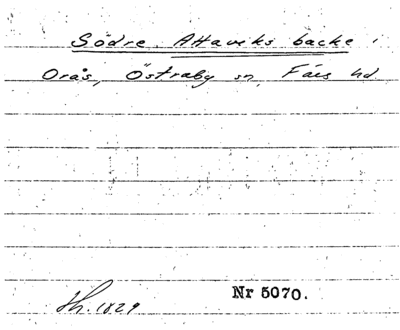 Södre Attaviks backe i
Orås, Östraby sn, Färs hd
Sk. 1829
Nr 5070.